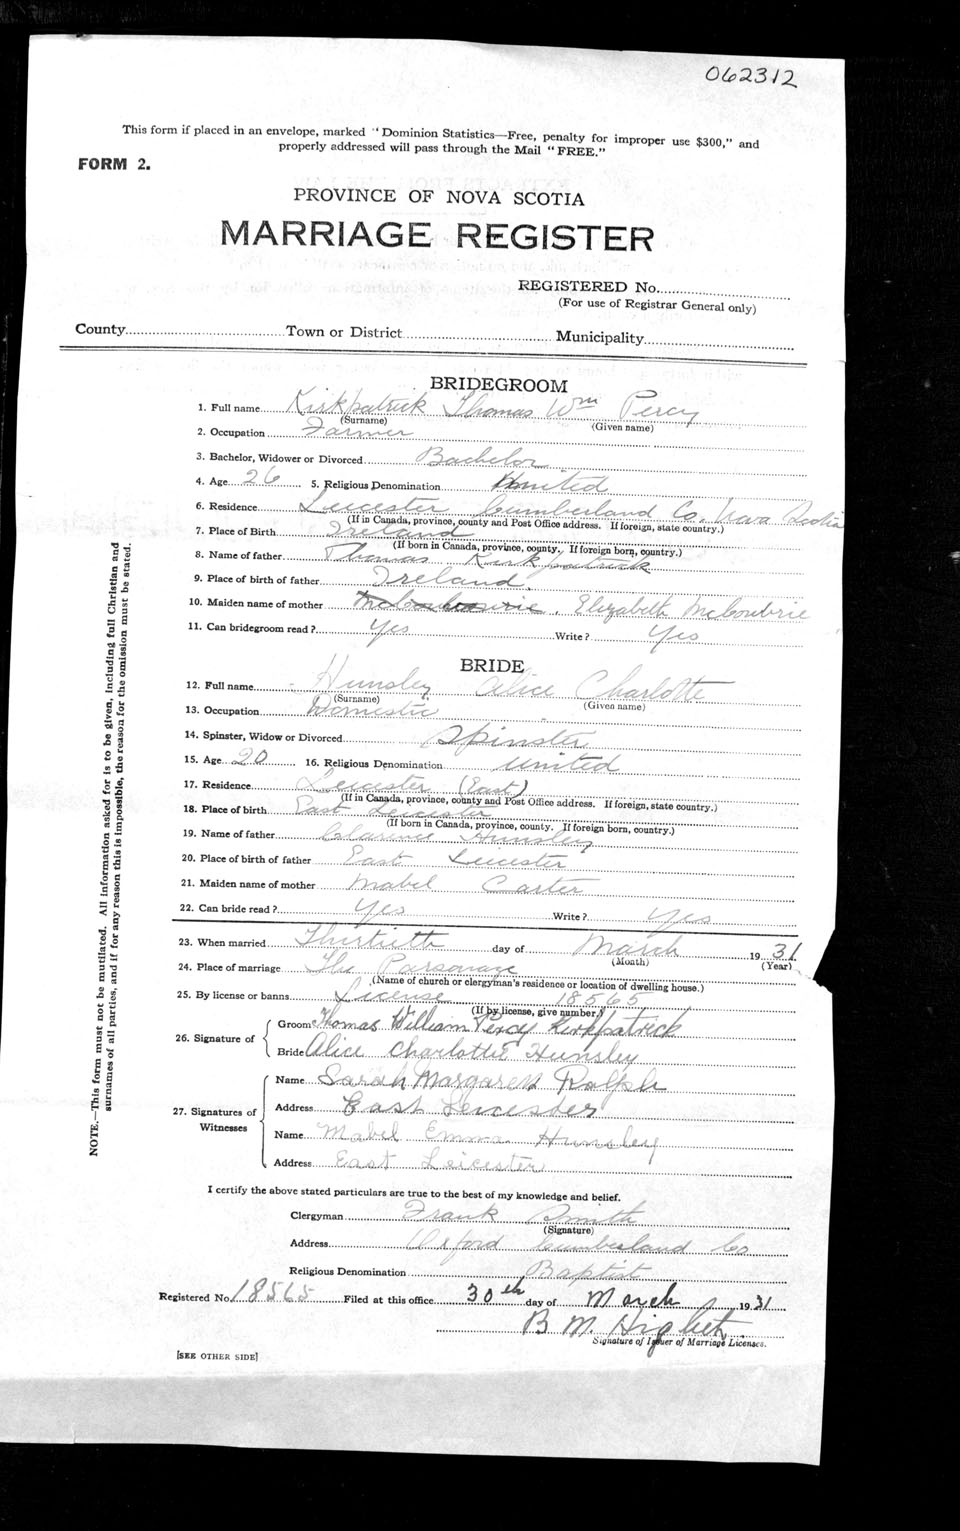 062312
This form if placed in an envelope, marked "Dominion Statistics—Free, penalty for improper use $300," and
properly addressed will pass through the Mail "FREE."
FORM 2.
PROVINCE OF NOVA SCOTIA
MARRIAGE REGISTER
REGISTERED No.
(For use of Registrar General only)
County Town or District Municipality
BRIDEGROOM
1. Full name Kirkpatrick Thomas Wm Percy
(Surname) (Given name)
2. Occupation Farmer
3. Bachelor, Widower or Divorced Bachelor
4. Age 26 5. Religious Denomination United
6. Residence Leicester Cumberland Co. Nova Scotia
(If in Canada, province, county and Post Office address. If foreign, state country.)
7. Place of Birth Ireland
(If born in Canada, province, county. If foreign born, country.)
8. Name of father Thomas Kirkpatrick
9. Place of birth of father Ireland.
10. Maiden name of mother Elizabeth McCoubrie
11. Can bridegroom read? Yes Write? Yes
BRIDE
12. Full name Hunsley Alice Charlotte
(Surname) (Given name)
13. Occupation Domestic
14. Spinster, Widow or Divorced Spinster
15. Age 20 16. Religious Denomination United
17. Residence Leicester (East)
(If in Canada, province, county and Post Office address. If foreign, state country.)
18. Place of birth East Leicester
(If born in Canada, province, county. If foreign born, country.)
19. Name of father Clarence Hunsley
20. Place of birth of father East Leicester
21. Maiden name of mother Mabel Carter
22. Can bride read? Yes Write? Yes
23. When married Thirtieth day of March 1931
(Month) (Year)
24. Place of marriage The Parsonage
(Name of church or clergyman's residence or location of dwelling house.)
25. By license or banns License 18565
(If by license, give number.)
26. Signature of
Groom Thomas William Percy Kirkpatrick
Bride Alice Charlotte Hunsley
27. Signatures of Witnesses
Name Sarah Margaret Ralph
Address East Leicester
Name Mabel Emma Hunsley
Address East Leicester
I certify the above stated particulars are true to the best of my knowledge and belief.
Clergyman Frank Smith
(Signature)
Address Oxford Cumberland Co
Religious Denomination Baptist
Registered No. 18565 Filed at this office 30th day of March 1931
B. M.
Signature of Issuer of Marriage Licenses.
[SEE OTHER SIDE]
NOTE.—This form must not be mutilated. All information asked for is to be given, including full Christian and
surnames of all parties, and if for any reason this is impossible, the reason for the omission must be stated.